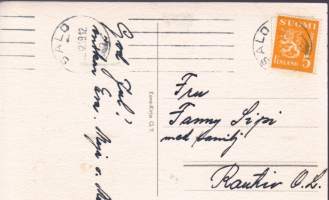 SALO
SALO
SUOMI
FINLAND
5
God Jul!
önskar Eva,
Fru
Fanny Sipi
med familj
Rautio O.L.